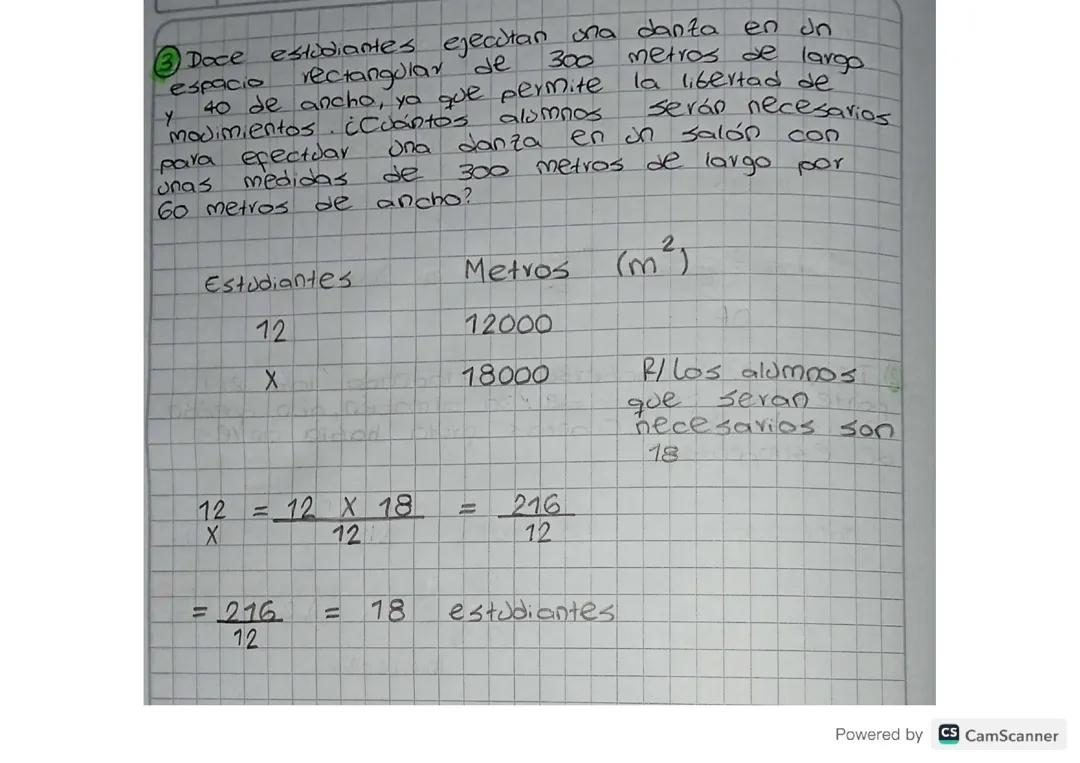 ③ Doce estudiantes ejecutan una danza en un
espacio rectangular de 300 metros de largo
y 40 de ancho, ya que permite la libertad de
movimientos. ¿Cuántos alumnos serán necesarios
para efectuar una danza en un salón con
unas medidas de 300 metros de largo por
60 metros de ancho?
Estudiantes Metros (m²)
12 12000
X 18000 R/ Los alumnos
que seran
necesarios son
18
12/X = 12 X 18/12 = 216/12
= 216/12 = 18 estudiantes
Powered by CS CamScanner